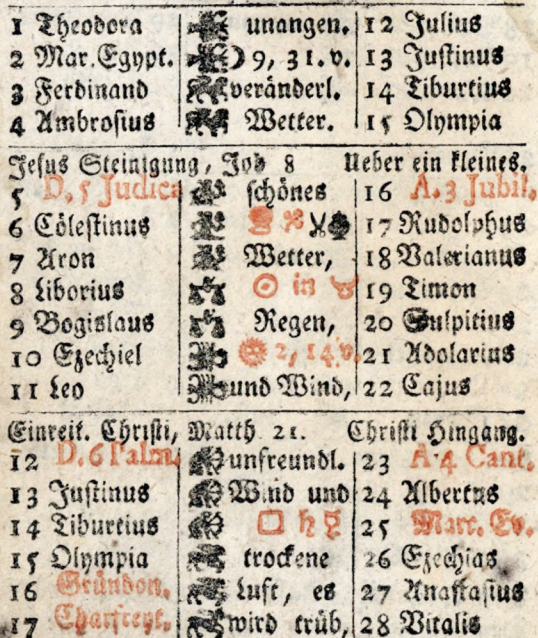 1 Theodora unangen. 12 Julius
2 Mar. Egypt. ☽ 9, 31. v. 13 Justinus
3 Ferdinand veränderl. 14 Tiburtius
4 Ambrosius Wetter. 15 Olympia
Jesus Steinigung, Joh 8 Ueber ein kleines.
5 D. 5 Judica schönes 16 A. 3 Jubil.
6 Cölestinus 17 Rudolphus
7 Aron Wetter, 18 Valerianus
8 Liborius ☉ in ♉ 19 Timon
9 Bogislaus Regen, 20 Sulpitius
10 Ezechiel 2, 14. v. 21 Adolarius
11 Leo und Wind, 22 Cajus
Einreit. Christi, Matth 21. Christi Hingang.
12 D. 6 Palm. unfreundl. 23 A 4 Cant.
13 Justinus Wind und 24 Albertus
14 Tiburtius □ ♄ ☿ 25 Marc. Ev.
15 Olympia trockene 26 Ezechias
16 Gründon. Luft, es 27 Anastasius
17 Charfreyt. wird trüb, 28 Vitalis